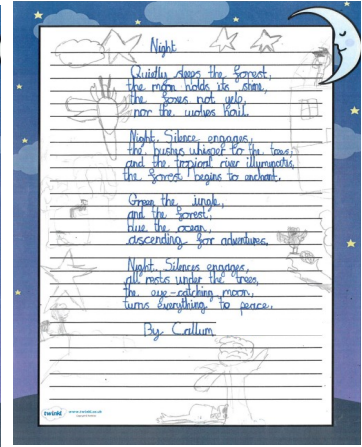 Night
Quietly sleeps the forest,
the moon holds its shine,
the foxes not yelp,
nor the wolves howl.
Night. Silence engages,
the bushes whisper to the trees,
and the tropical river illuminates,
the forrest begins to enchant.
Green the jungle,
and the forest,
blue the ocean,
ascending for adventures.
Night. Silences engages,
all rests under the trees,
the eye-catching moon,
turns everything to peace.
By Callum
twinkl www.twinkl.co.uk